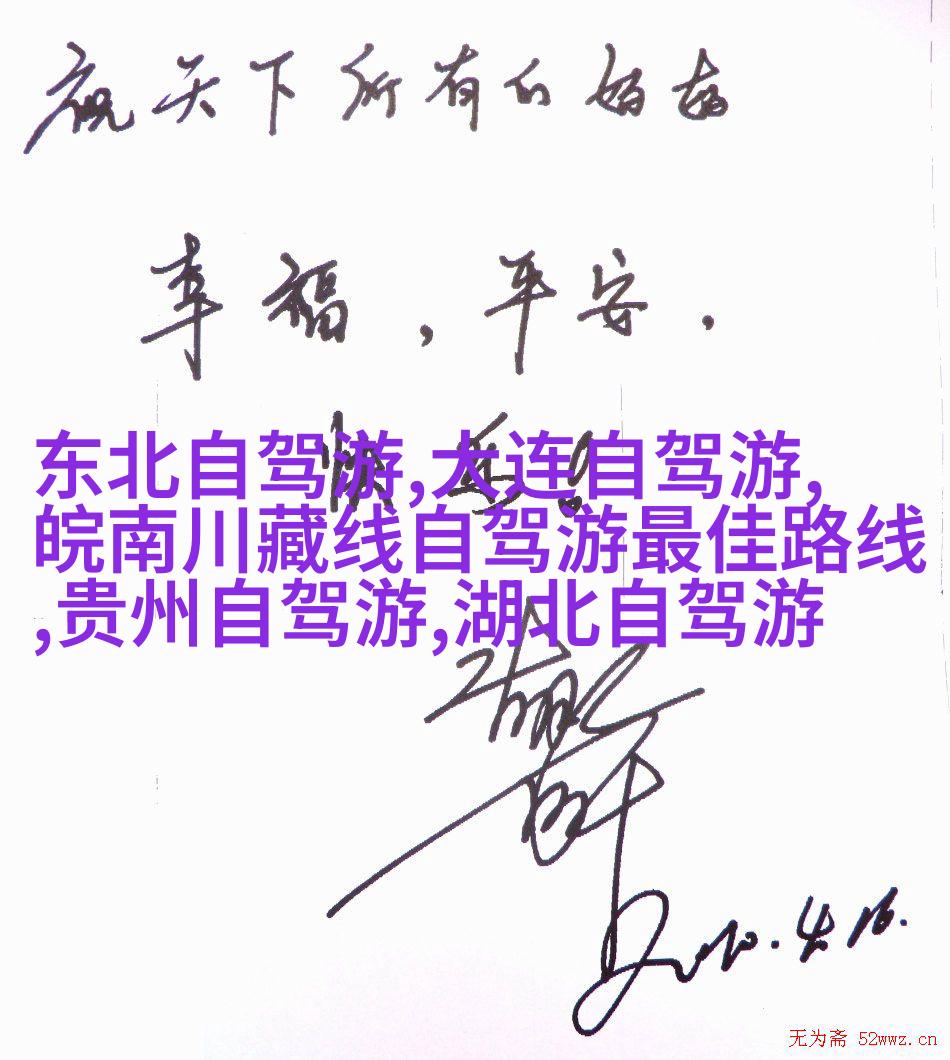 祝天下所有的妈妈
幸福，平安，
快乐！
东北自驾游,大连自驾游,
皖南川藏线自驾游最佳路线
,贵州自驾游,湖北自驾游
2010.4.16.
无为斋 52wwz.cn